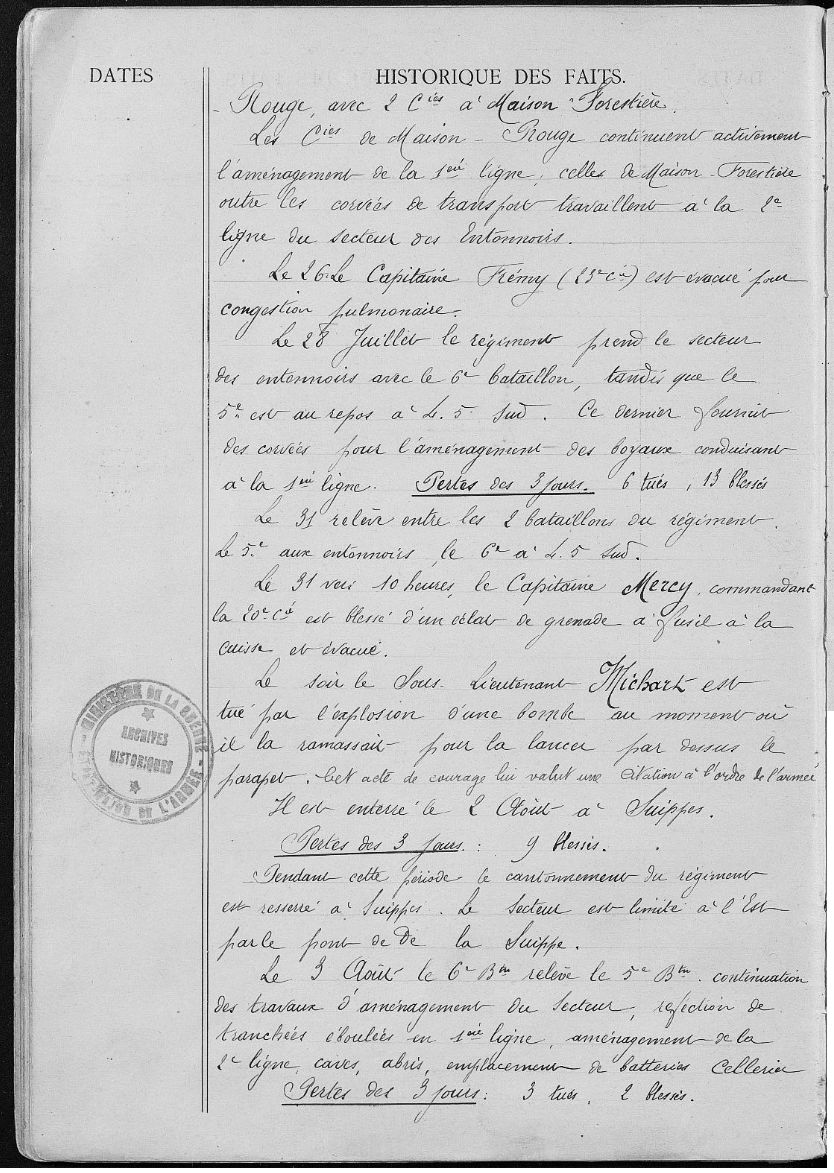 DATES
HISTORIQUE DES FAITS.
Rouge, avec 2 Cies à Maison-Forestière.
Les Cies de Maison-Rouge continuent activement
l'aménagement de la 1ère ligne; celles de Maison-Forestière
outre les corvées de transport travaillent à la 2e
ligne du secteur des Entonnoirs.
Le 26 Le Capitaine Frémy (23e Cie) est évacué pour
congestion pulmonaire.
Le 28 Juillet le régiment prend le secteur
des entonnoirs avec le 6e bataillon, tandis que le
5e est au repos à L. 5 Sud. Ce dernier fournit
des corvées pour l'aménagement des boyaux conduisant
à la 1ère ligne. Pertes des 3 jours. 6 tués, 13 blessés
Le 31 relève entre les 2 bataillons du régiment.
Le 5e aux entonnoirs, le 6e à L. 5 Sud.
Le 31 vers 10 heures, le Capitaine Mercy, commandant
la 20e Cie est blessé d'un éclat de grenade à fusil à la
cuisse et évacué.
Le soir le Sous-Lieutenant Michart est
tué par l'explosion d'une bombe au moment où
il la ramassait pour la lancer par dessus le
parapet. Cet acte de courage lui valut une citation à l'ordre de l'armée
Il est enterré le 2 Août à Suippes.
Pertes des 3 jours: 9 blessés.
Pendant cette période le cantonnement du régiment
est resserré à Suippes. Le Secteur est limité à l'Est
par le pont de De la Suippe.
Le 3 Août le 6e Bon relève le 5e Bon. continuation
des travaux d'aménagement du Secteur, réfection de
tranchées éboulées en 1ère ligne, aménagement de la
2e ligne, caves, abris, emplacement de batteries Cellerier
Pertes des 3 jours: 3 tués, 2 blessés.
MINISTÈRE DE LA GUERRE
ARCHIVES
HISTORIQUES
ÉTAT-MAJOR DE L'ARMÉE